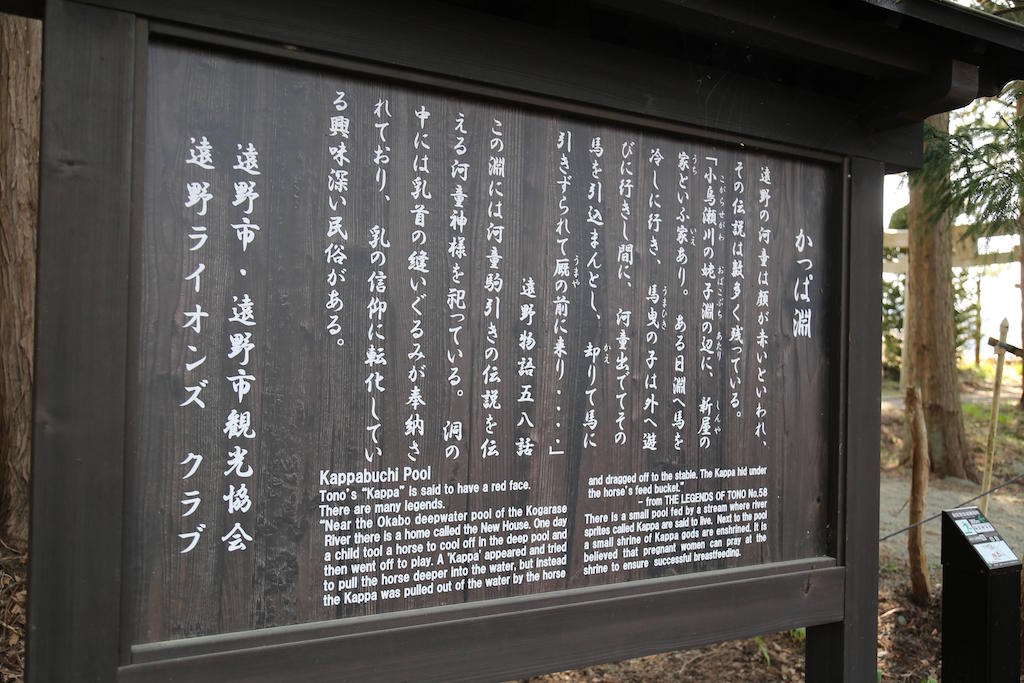 かっぱ淵
遠野の河童は顔が赤いといわれ、
その伝説は数多く残っている。
「小烏瀬川の姥子淵の辺に、新屋の
家といふ家あり。ある日淵へ馬を
冷しに行き、馬曳の子は外へ遊
びに行きし間に、河童出でてその
馬を引込まんとし、却りて馬に
引きずられて厩の前に来り・・・」
遠野物語五八話
この淵には河童駒引きの伝説を伝
える河童神様を祀っている。洞の
中には乳首の縫いぐるみが奉納さ
れており、乳の信仰に転化してい
る興味深い民俗がある。
遠野市・遠野市観光協会
遠野ライオンズ クラブ
Kappabuchi Pool
Tono's "Kappa" is said to have a red face.
There are many legends.
"Near the Okabo deepwater pool of the Kogarase
River there is a home called the New House. One day
a child tool a horse to cool off in the deep pool and
then went off to play. A 'Kappa' appeared and tried
to pull the horse deeper into the water, but instead
the Kappa was pulled out of the water by the horse
and dragged off to the stable. The Kappa hid under
the horse's feed bucket."
– from THE LEGENDS OF TONO No.58
There is a small pool fed by a stream where river
sprites called Kappa are said to live. Next to the pool
a small shrine of Kappa gods are enshrined. It is
believed that pregnant women can pray at the
shrine to ensure successful breastfeeding.